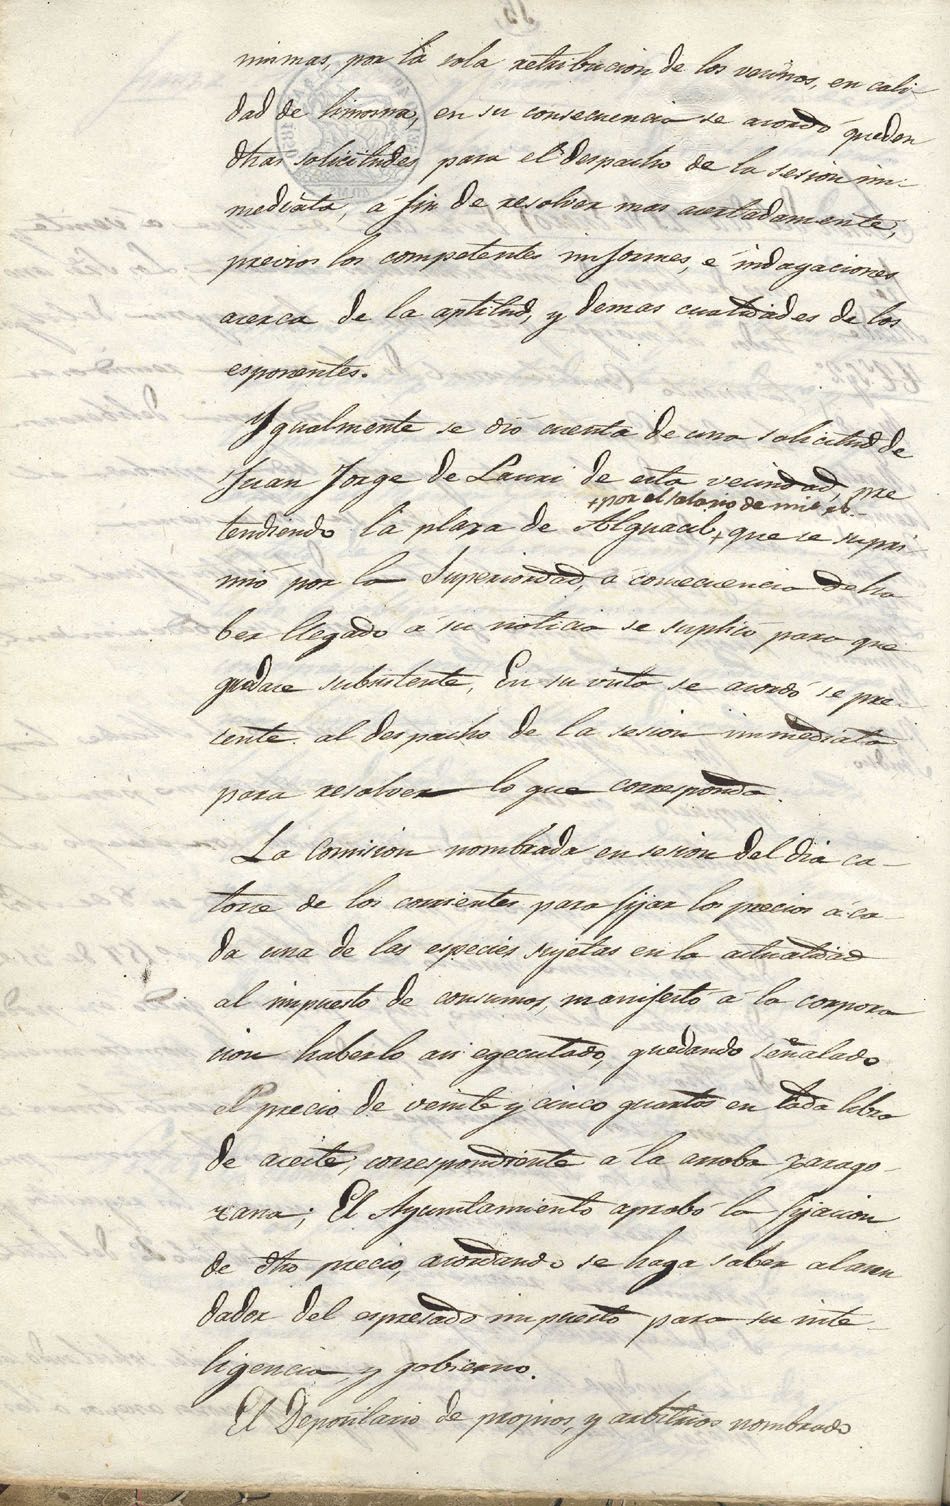 mimas, por la sola retribucion de los vecinos, en cali-
dad de limosna, en su consecuencia se acordó queden
dhas solicitudes para el despacho de la sesion in-
mediata, á fin de resolver mas acertadamente,
previos los competentes informes, é indagaciones
acerca de la aptitud, y demas cualidades de los
esponentes.
Ygualmente se dió cuenta de una solicitud de
Juan Jorge de Lauri de esta vecindad, pre
+ por el salario de mil rs.
tendiendo la plaza de Alguacil, + que se supri-
mió por la Superioridad, á consecuencia de ha
ber llegado á su noticia se suplicó para que
quedase subsistente, En su vista se acordó se pre-
sente al despacho de la sesion immediata
para resolver lo que corresponda.
La Comision nombrada en sesion del dia ca-
torce de los corrientes para fijar los precios á ca
da una de las especies sujetas en la actualidad
al impuesto de consumos, manifestó á la corpora
cion haberlo asi egecutado, quedando señalado
el precio de veinte y cinco quartos en cada libra
de aceite, correspondiente á la arroba zarago-
zana; El Ayuntamiento aprobó la fijacion
de dho precio, acordando se haga saber al arren
dador del espresado impuesto para su inte-
ligencia y gobierno.
El Depositario de propios, y arbitrios nombrado